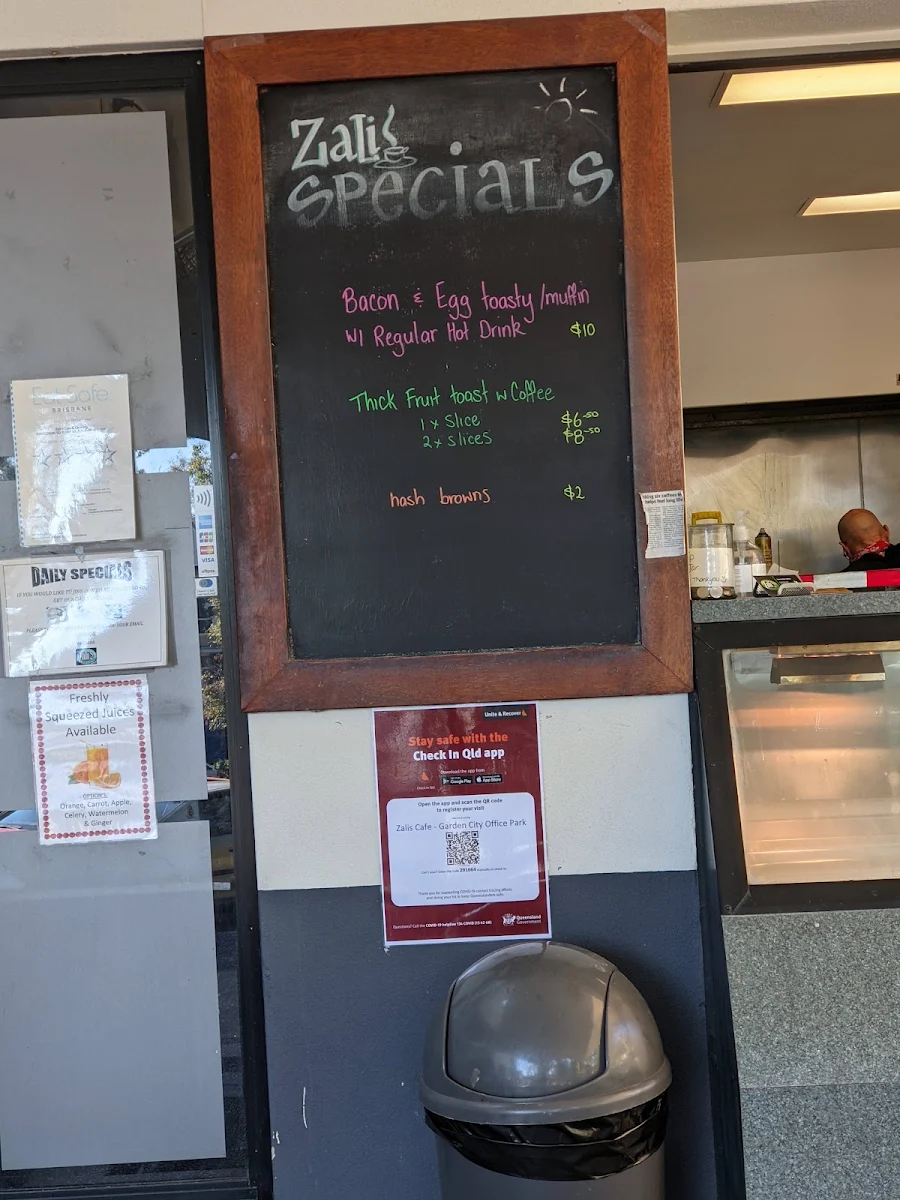 Zalis
Specials
Bacon & Egg toasty/muffin
W/ Regular Hot Drink $10
Thick Fruit toast w Coffee
1 x Slice $6-50
2 x slices $8-50
hash browns $2
Eat Safe
BRISBANE
VISA
DAILY SPECIALS
Freshly
Squeezed Juices
Available
OPTIONS
Orange, Carrot, Apple,
Celery, Watermelon
& Ginger
Unite & Recover
Stay safe with the
Check In Qld app
Download the app from
Google Play
App Store
Open the app and scan the QR code
to register your visit
Zalis Cafe - Garden City Office Park
Queensland
Government
Thankyou